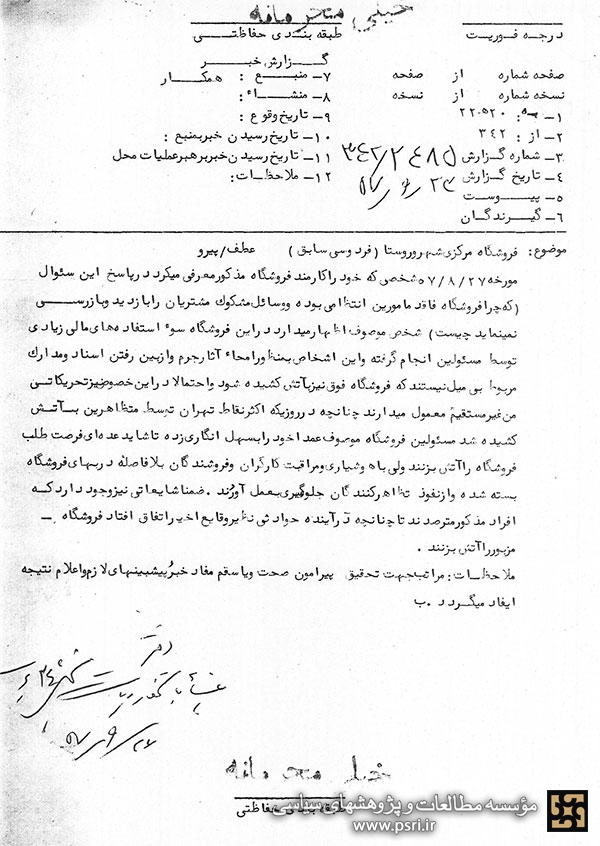 خیلی محرمانه
درجه فوریت
طبقه بندی حفاظتی
گزارش خبر
صفحه شماره از صفحه
نسخه شماره از نسخه
۱ـ به: ۲۲۰۵۲۰
۲ـ از: ۳۴۲
۳ـ شماره گزارش
۴ـ تاریخ گزارش
۵ـ پیوست
۶ـ گیرندگان
۷ـ منبع : همکار
۸ـ منشاء:
۹ـ تاریخ وقوع :
۱۰ـ تاریخ رسیدن خبربمنبع :
۱۱ـ تاریخ رسیدن خبربرهبرعملیات محل
۱۲ـ ملاحظات:
موضوع: فروشگاه مرکزی شهروروستا (فردوسی سابق) عطف/پیرو
مورخه ۵۷/۸/۲۷ شخصی که خود راکارمند فروشگاه مذکورمعرفی میکرد درپاسخ این سئوال
(که چرافروشگاه فاقد مامورین انتظامی بوده ووسائل مشکوك مشتریان رابازدید وبازرسی
نمینماید چیست) شخص موصوف اظهارمیدارد دراین فروشگاه سوء استفاده های مالی زیادی
توسط مسئولین انجام گرفته واین اشخاص بمنظورامحاء آثارجرم وازبین رفتن اسناد ومدارك
مربوط بی میل نیستند که فروشگاه فوق نیزبآتش کشیده شود واحتمالا دراین خصوص نیزتحریکاتی
من غیرمستقیم معمول میدارند چنانچه درروزیکه اکثرنقاط تهران توسط متظاهرین بآتش
کشیده شد مسئولین فروشگاه موصوف عمدا خود رابسهل انگاری زده تاشاید عده ای فرصت طلب
فروشگاه راآتش بزنند ولی باهوشیاری ومراقبت کارگران وفروشندگان بلافاصله دربهای فروشگاه
بسته شده وازنفوذ تظاهرکنندگان جلوگیری بعمل آورند . ضمنا شایعاتی نیزوجود دارد که
افراد مذکورمترصدند تاچنانچه درآینده حوادثی نظیروقایع اخیراتفاق افتاد فروشگاه ـ
مزبورراآتش بزنند .
ملاحظات: مراتب جهت تحقیق پیرامون صحت ویاسقم مفاد خبروپیشبینیهای لازم واعلام نتیجه
ایفاد میگردد .ب
خیلی محرمانه
طبقه بندی حفاظتی
مؤسسه مطالعات و پژوهشهای سیاسی
www.psri.ir